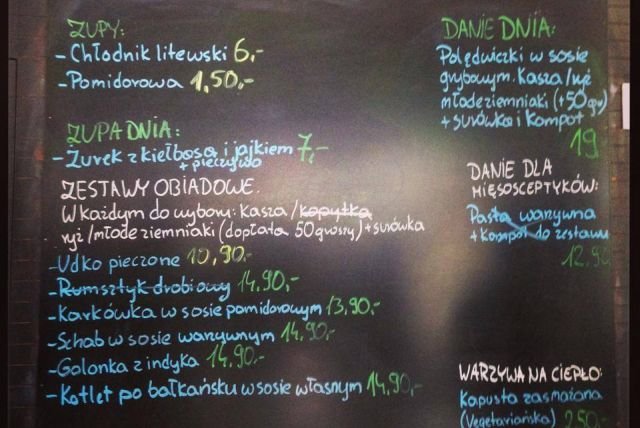 ZUPY:
- Chłodnik litewski 6,-
- Pomidorowa 1,50,-
ZUPA DNIA:
- Żurek z kiełbasą i jajkiem 7,-
+ pieczywo
ZESTAWY OBIADOWE.
W każdym do wyboru: Kasza/kopytka
ryż/młode ziemniaki (dopłata 50 groszy) + surówka
- Udko pieczone 10,90,-
- Rumsztyk drobiowy 14,90,-
- Karkówka w sosie pomidorowym 13,90,-
- Schab w sosie warzywnym 14,90,-
- Golonka z indyka 14,90,-
- Kotlet po bałkańsku w sosie własnym 14,90,-
DANIE DNIA:
Polędwiczki w sosie
grzybowym. Kasza/ryż
młode ziemniaki (+50gr)
+ surówka i kompot
19
DANIE DLA
MIĘSOSCEPTYKÓW:
Pasta warzywna
+ Kompot do zestawu
12,90
WARZYWA NA CIEPŁO:
Kapusta zasmażana
(Vegetariańska) 2,50,-